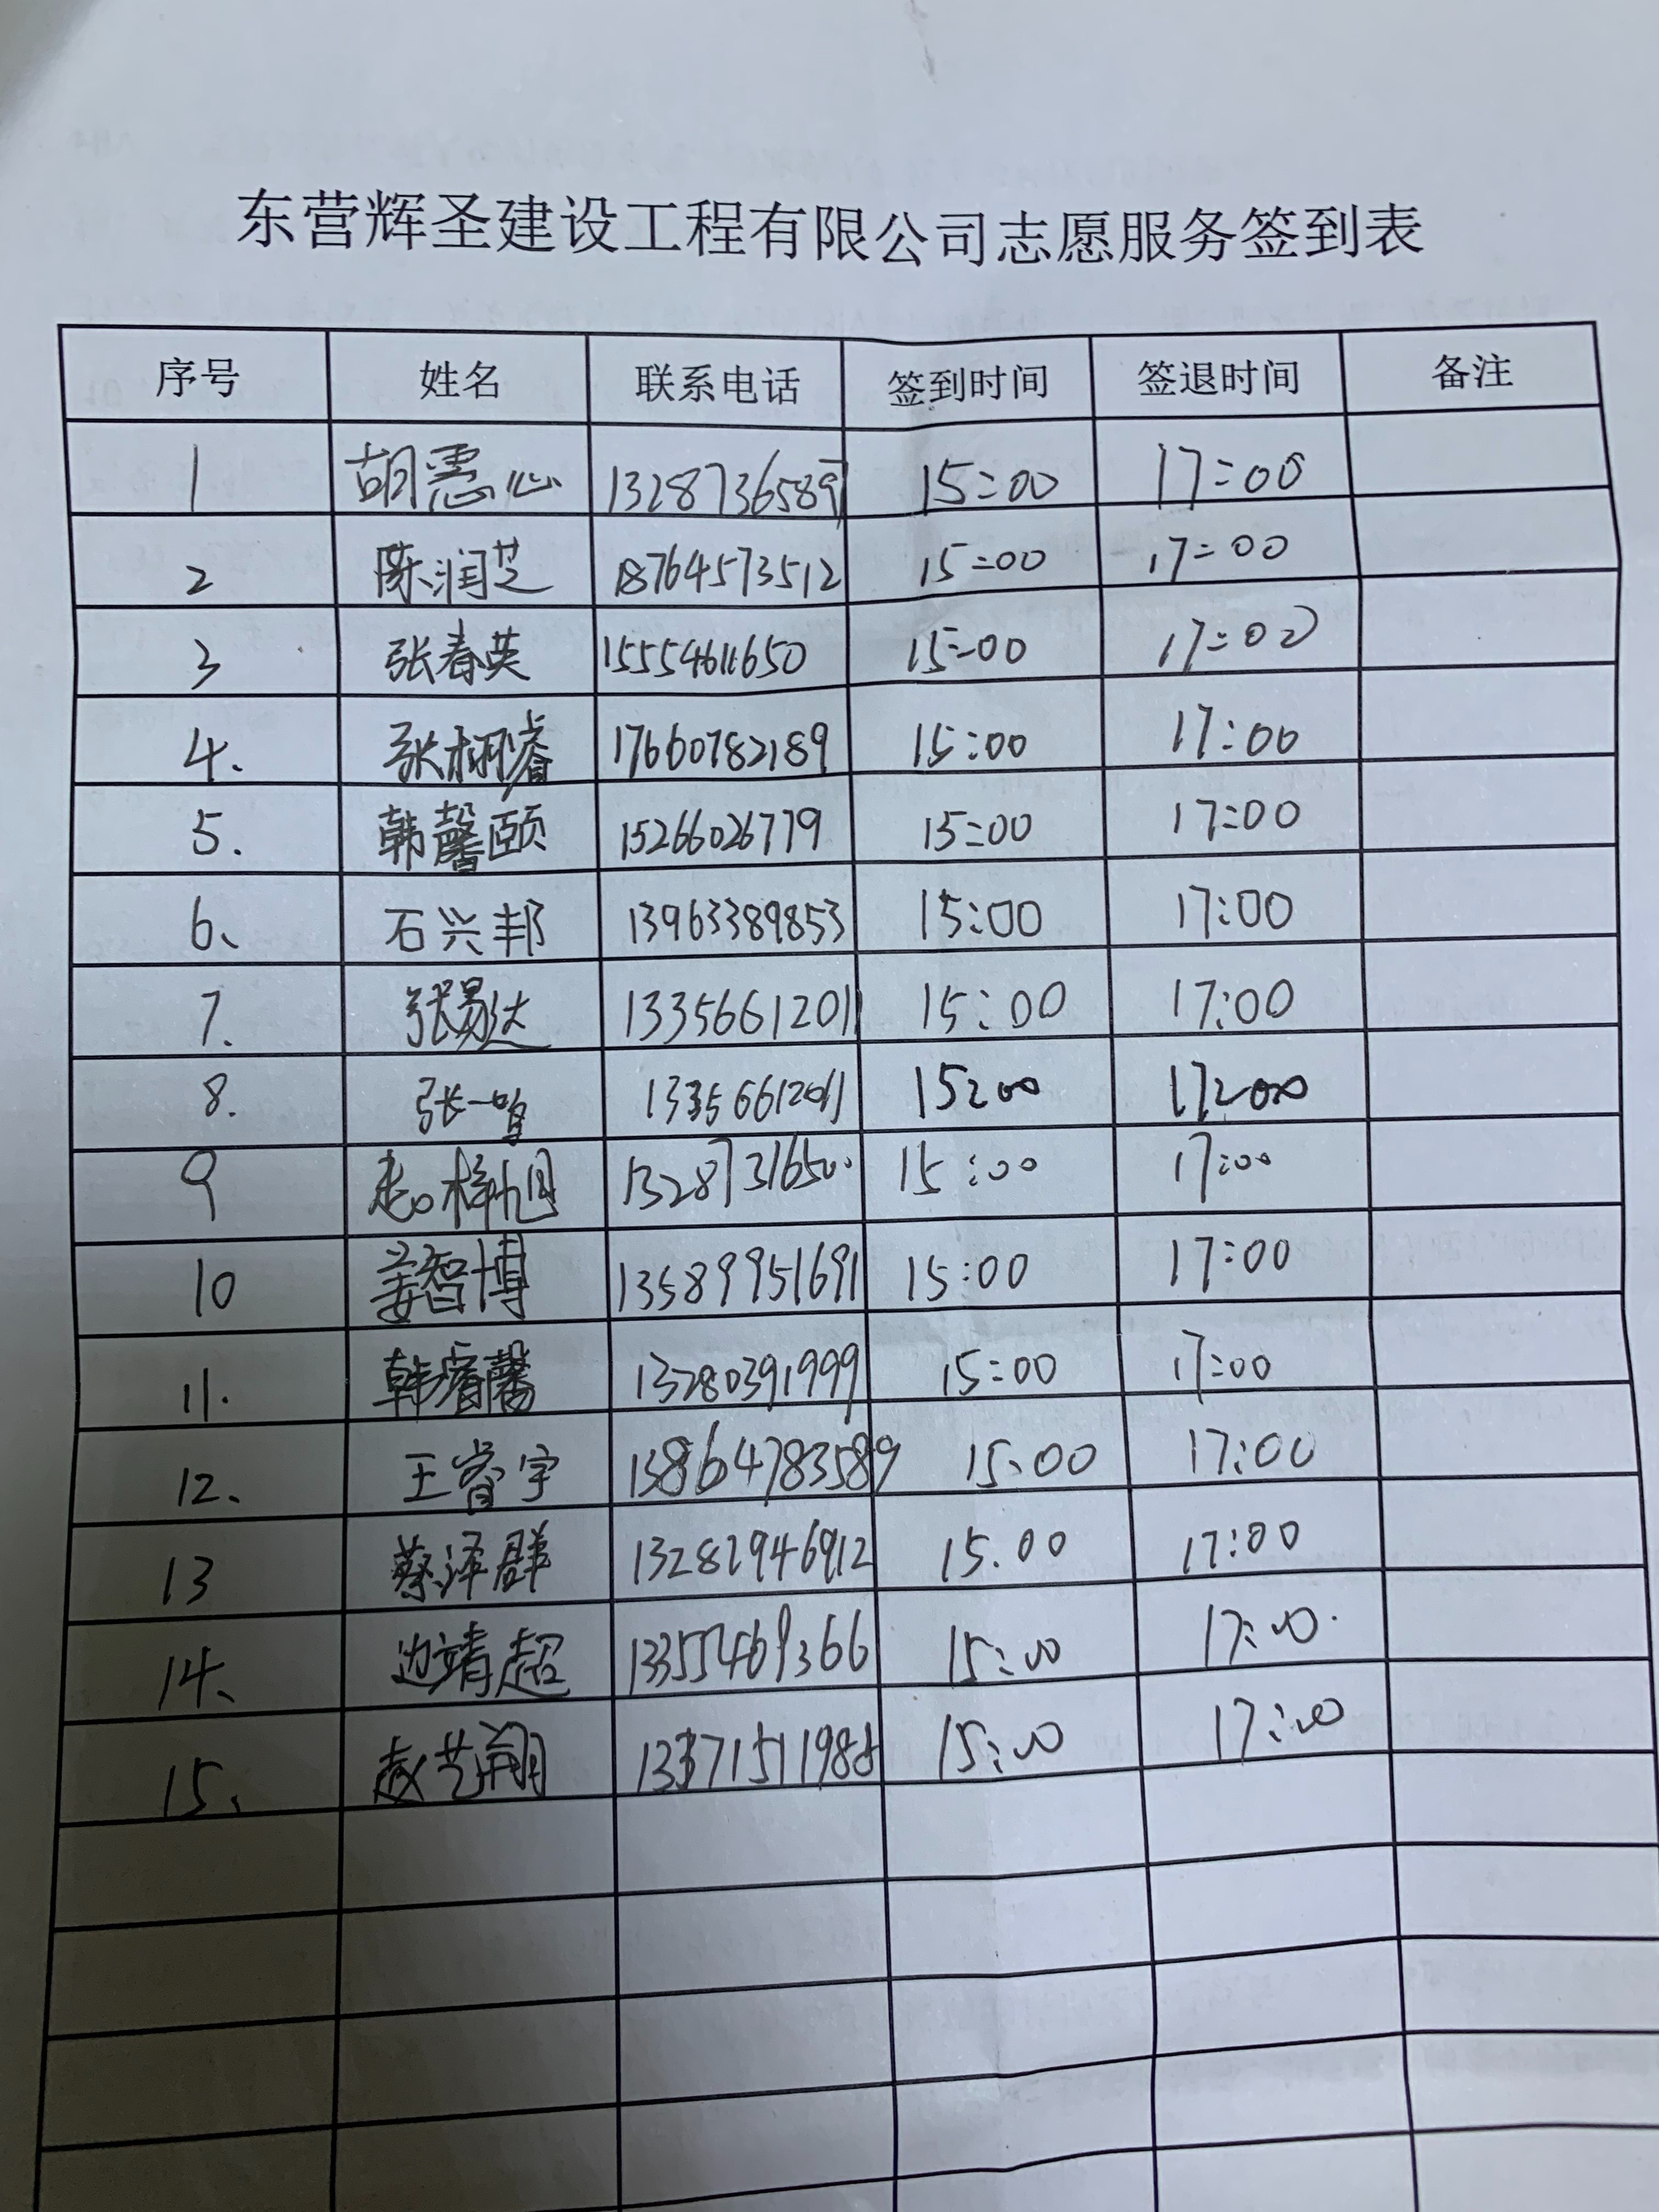 东营辉圣建设工程有限公司志愿服务签到表
序号 姓名 联系电话 签到时间 签退时间 备注
1 胡惠心 13287365897 15:00 17:00
2 陈润芝 18764573512 15:00 17:00
3 张春英 15554611650 15:00 17:00
4、 张栩睿 17660782189 15:00 17:00
5. 韩馨颐 15266026779 15:00 17:00
6、 石兴邦 13963389853 15:00 17:00
7. 张易达 13356612011 15:00 17:00
8. 张一 13356612011 15:00 17:00
9 梓旭 13287316500 15:00 17:00
10 姜智博 13589951691 15:00 17:00
11. 韩睿馨 13280391999 15:00 17:00
12、 王睿宇 13864783589 15:00 17:00
13 蔡泽群 13282946912 15.00 17:00
14、 边靖超 15:00 17:00
15、 赵艺翔 13371511988 15:00 17:00